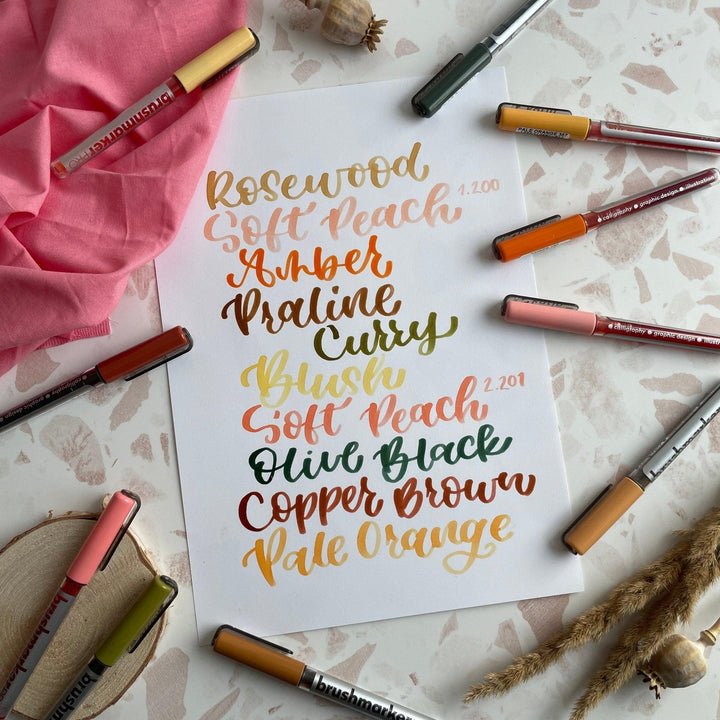 brushmarkerPRO
PALE ORANGE
calligraphy • graphic design • illustration
calligraphy • graphic design • illustra
Rosewood
Soft Peach 1.200
Amber
Praline
Curry
Blush
Soft Peach 2.201
Olive Black
Copper Brown
Pale Orange
graphic design
brushmarker
brushmarker
brushmarker
brushmarker